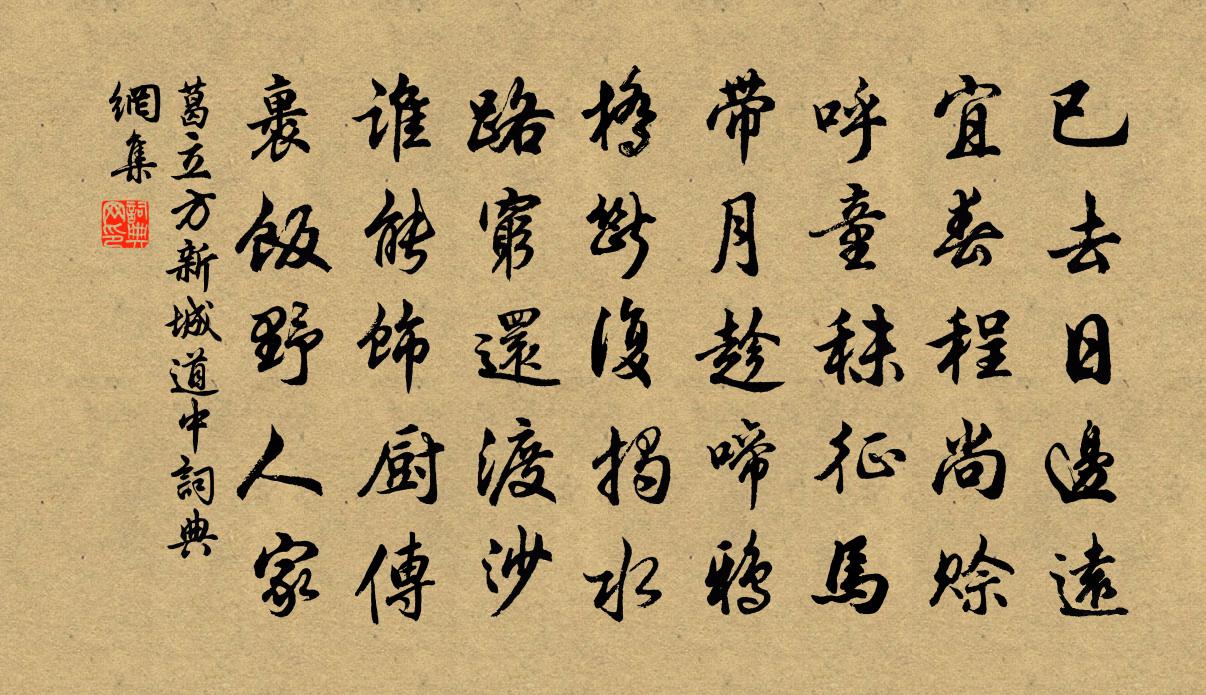 已去日邊遠
宜春程尚賒
呼童秣征馬
帶月趁啼鴉
橋斷復揭水
路窮還渡沙
誰能飾厨傳
裹飯野人家
葛立方新城道中詞典
網集
詞典
网印